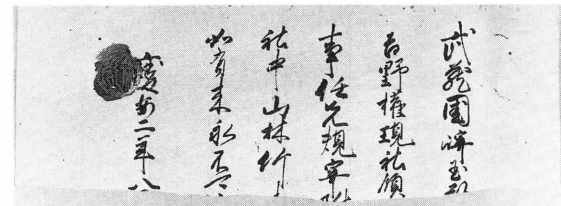 武藏國埼玉郡
吉野權現社領
事任先規寄附
社中山林竹
如有來永不可
慶安二年八